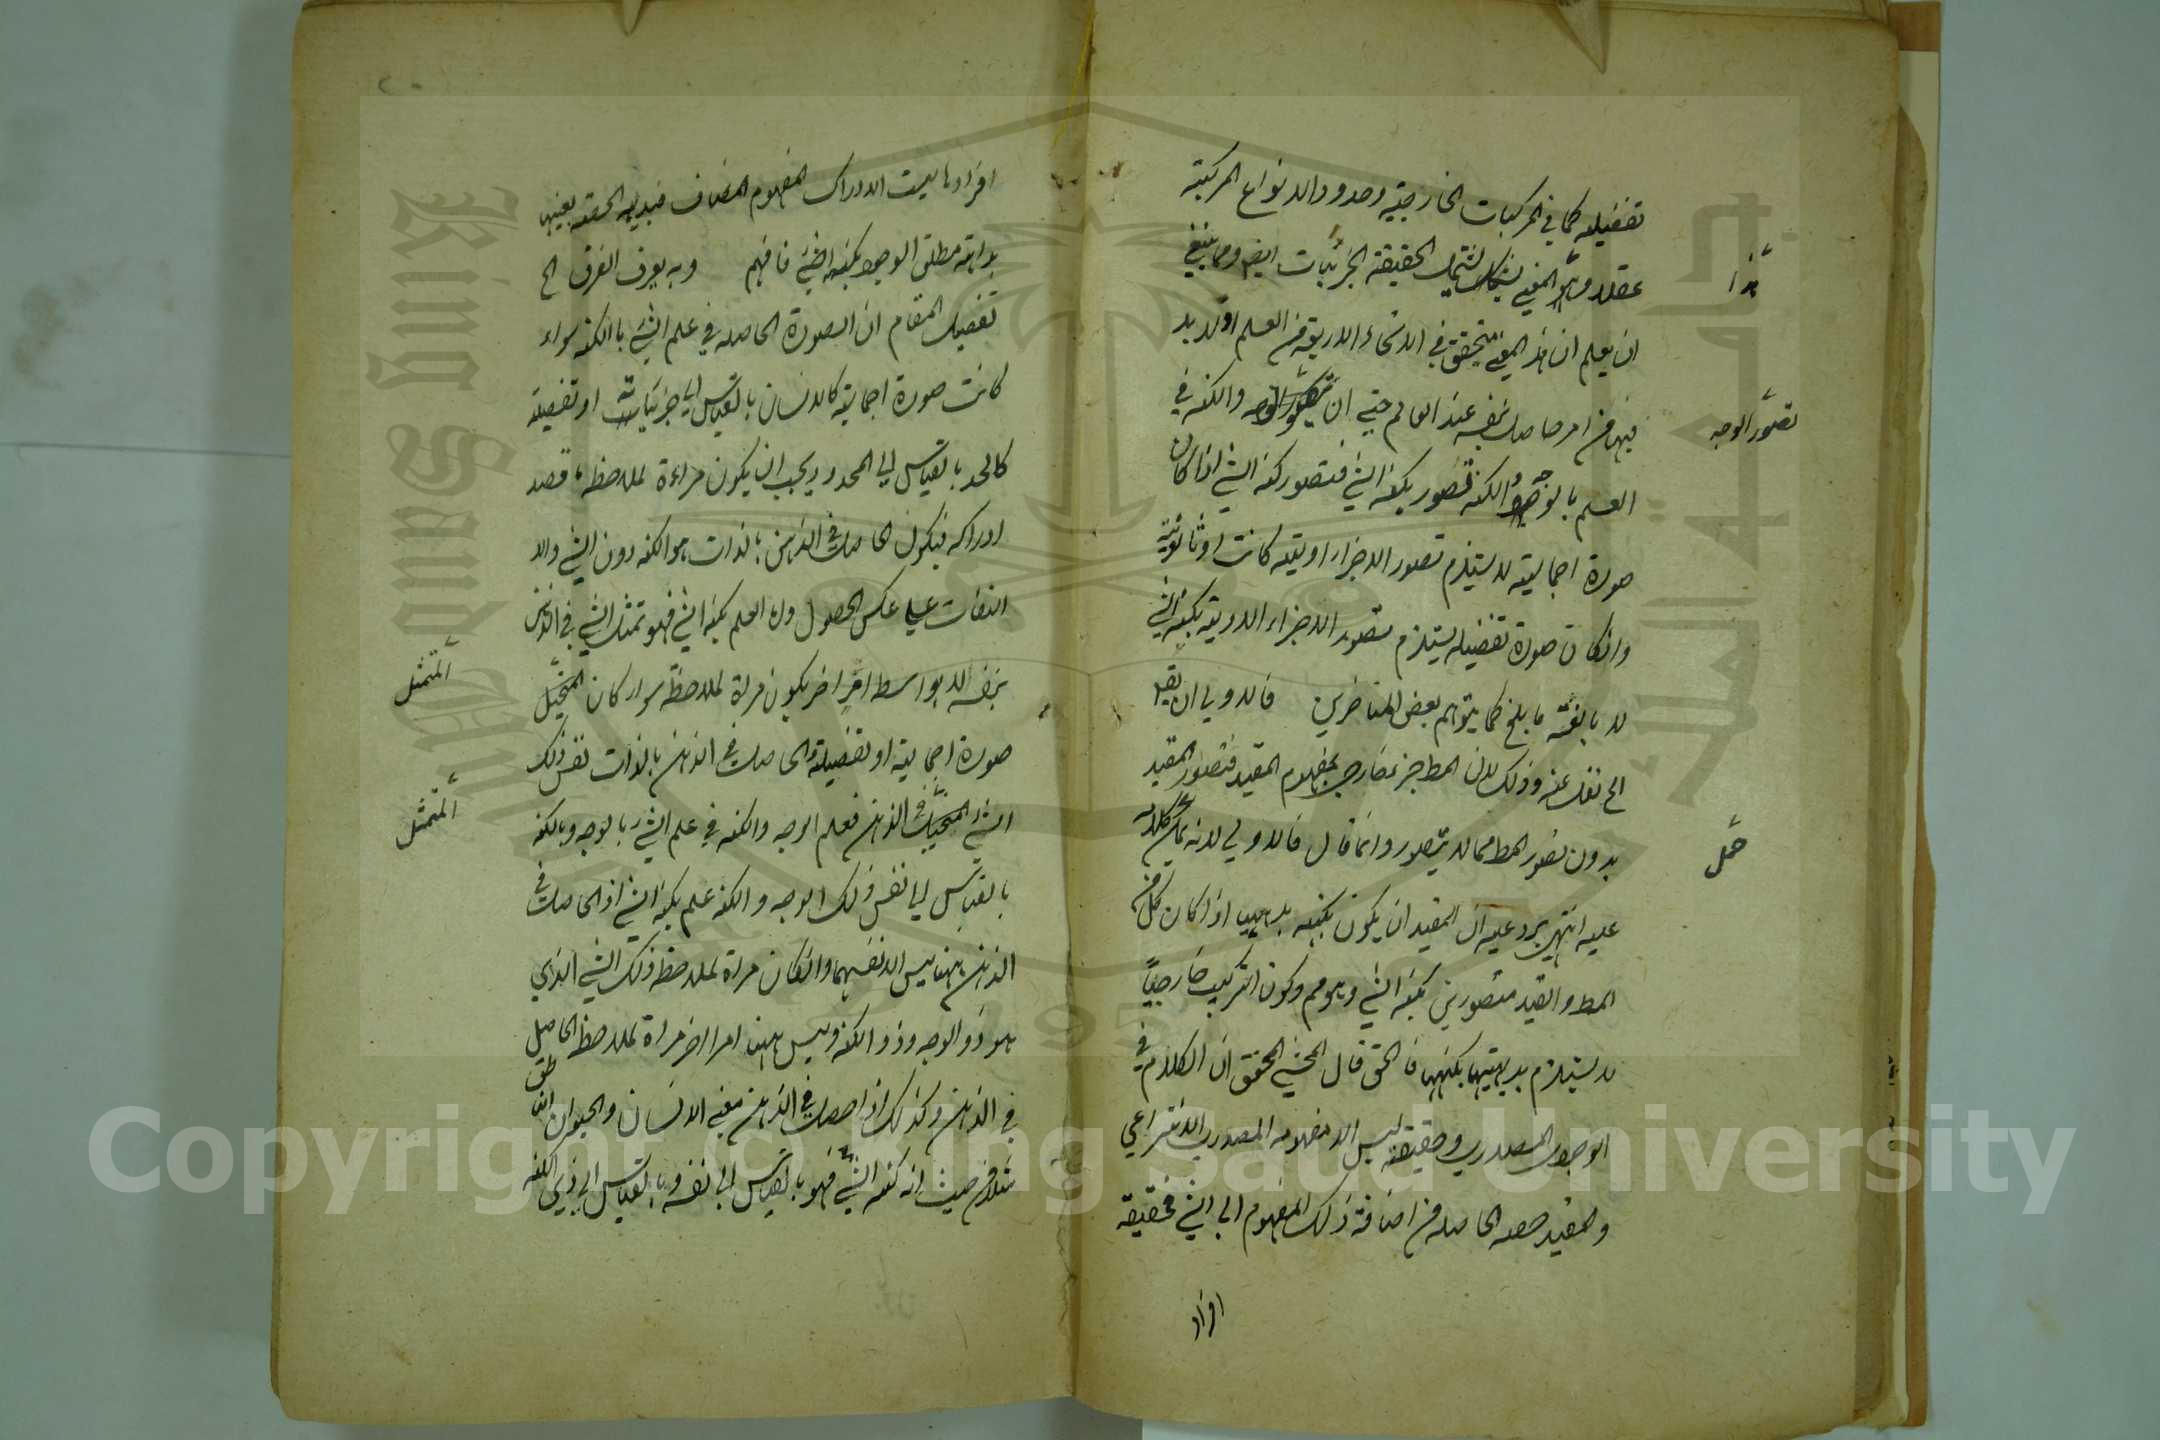 تفضيلية كما في المركبات الخارجية وحدود الانواع المركبة
عقلا و هذا المعنى يشتمل الحقيقة الجزئيات ايضم ومما ينبغي
هذا
ان يعلم ان هذا المعنى يتحقق في الانحاء الاربعة من العلم اذ لا بد
فيها من امر حاصل بنفسه عند العالم حتى ان تصور الوجه والكنه في
تصور الوجه
العلم بالوجه والكنه تصور بكنه الشي فتصور كنه الشي اذا كان
صورة اجمالية لا يستلزم تصور الاجزاء اولية كانت او ثانوية
وان كان صورة تفضيلية يستلزم تصور الاجزاء الاولية بكنه الشي
لا بالغة ما بلغ كما يتوهم بعض المتاخرين فالاولى ان يق
الخ نقل عنه وذلك لان المط جزء خارج لمفهوم المقيد فتصور المقيد
بدون تصور المط مما لا يتصور وانما قال فالاولى لانه يمكن حمل كلامه
حمل
عليه انتهى يرد عليه ان المقيد ان يكون بكنهه بديهيا اذا كان كل من
المط والقيد متصورين بكنه الشي وهو مم وكون التركيب خارجيا
لا يستلزم بديهيتهما بكنههما فالحق قال المحشي المحقق ان الكلام في
الوجود المصدري وحقيقته ليس الا مفهومه المصدري الانتزاعي
والمقيد حصة الحاصلة من اضافة ذلك المفهوم الى الشي فحقيقة
افراد
افرادها ليست الا دراك المفهوم المضاف فبديهية الحصة بعينها
بداهة مطلق الوجود بكنه الشي فافهم وبه يعرف الفرق الخ
تفصيل المقام ان الصورة الحاصلة في علم الشي بالكنه سواء
كانت صورة اجمالية كالانسان بالقياس الى جزئياته او تفصيلية
كالحد بالقياس الى المحدود يجب ان يكون مراءة لملاحظة ما قصد
ادراكه فيكون الحاصل في الذهن بالذات هو الكنه دون الشي والا
التفات على عكس الحصول واما العلم بكنه الشي فهو تمثل الشي في الذهن
بنفسه لا بواسطة امر اخر يكون مراة لملاحظة سواء كان المتخيل
المتمثل
صورة اجمالية او تفضيلية والحاصل في الذهن بالذات نفس ذلك
الشي المتخيل في الذهن فعلم الوجه والكنه في علم الشي بالوجه وبالكنه
المتمثل
بالقياس الى نفس ذلك الوجه والكنه علم بكنه الشي اذ الحاصل في
الذهن ههنا ليس الا نفسهما وان كان مراة لملاحظة ذلك الشي الذي
هو ذو الوجه وذو الكنه وليس ههنا امرا اخر مراة لملاحظة الحاصل
في الذهن وكذلك اذا حصل في الذهن معنى الانسان والحيوان الناطق
مثلا من حيث انه كنه الشي فهو بالقياس الى نفسه وبالقياس الى ذي الكنه
Copyright © King Saud University
King Saud University
جامعة الملك سعود
1957